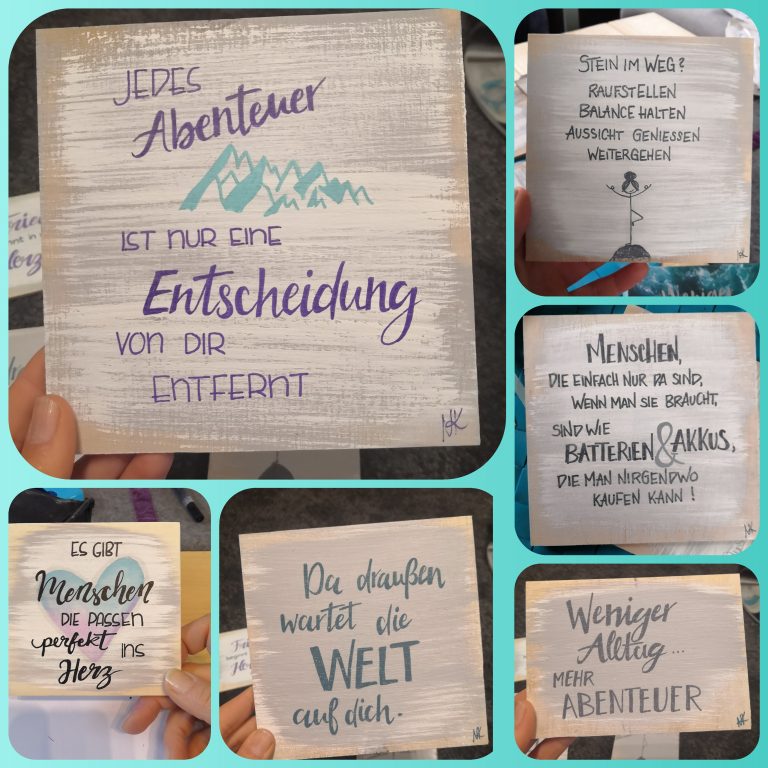 JEDES
Abenteuer
IST NUR EINE
Entscheidung
VON DIR
ENTFERNT
NK
STEIN IM WEG?
RAUFSTELLEN
BALANCE HALTEN
AUSSICHT GENIESSEN
WEITERGEHEN
NK
MENSCHEN,
DIE EINFACH NUR DA SIND,
WENN MAN SIE BRAUCHT,
SIND WIE
BATTERIEN & AKKUS,
DIE MAN NIRGENDWO
KAUFEN KANN!
NK
ES GIBT
Menschen
DIE PASSEN
perfekt INS
Herz
Da draußen
wartet die
WELT
auf dich.
NK
Weniger
Alltag...
MEHR
ABENTEUER
NK